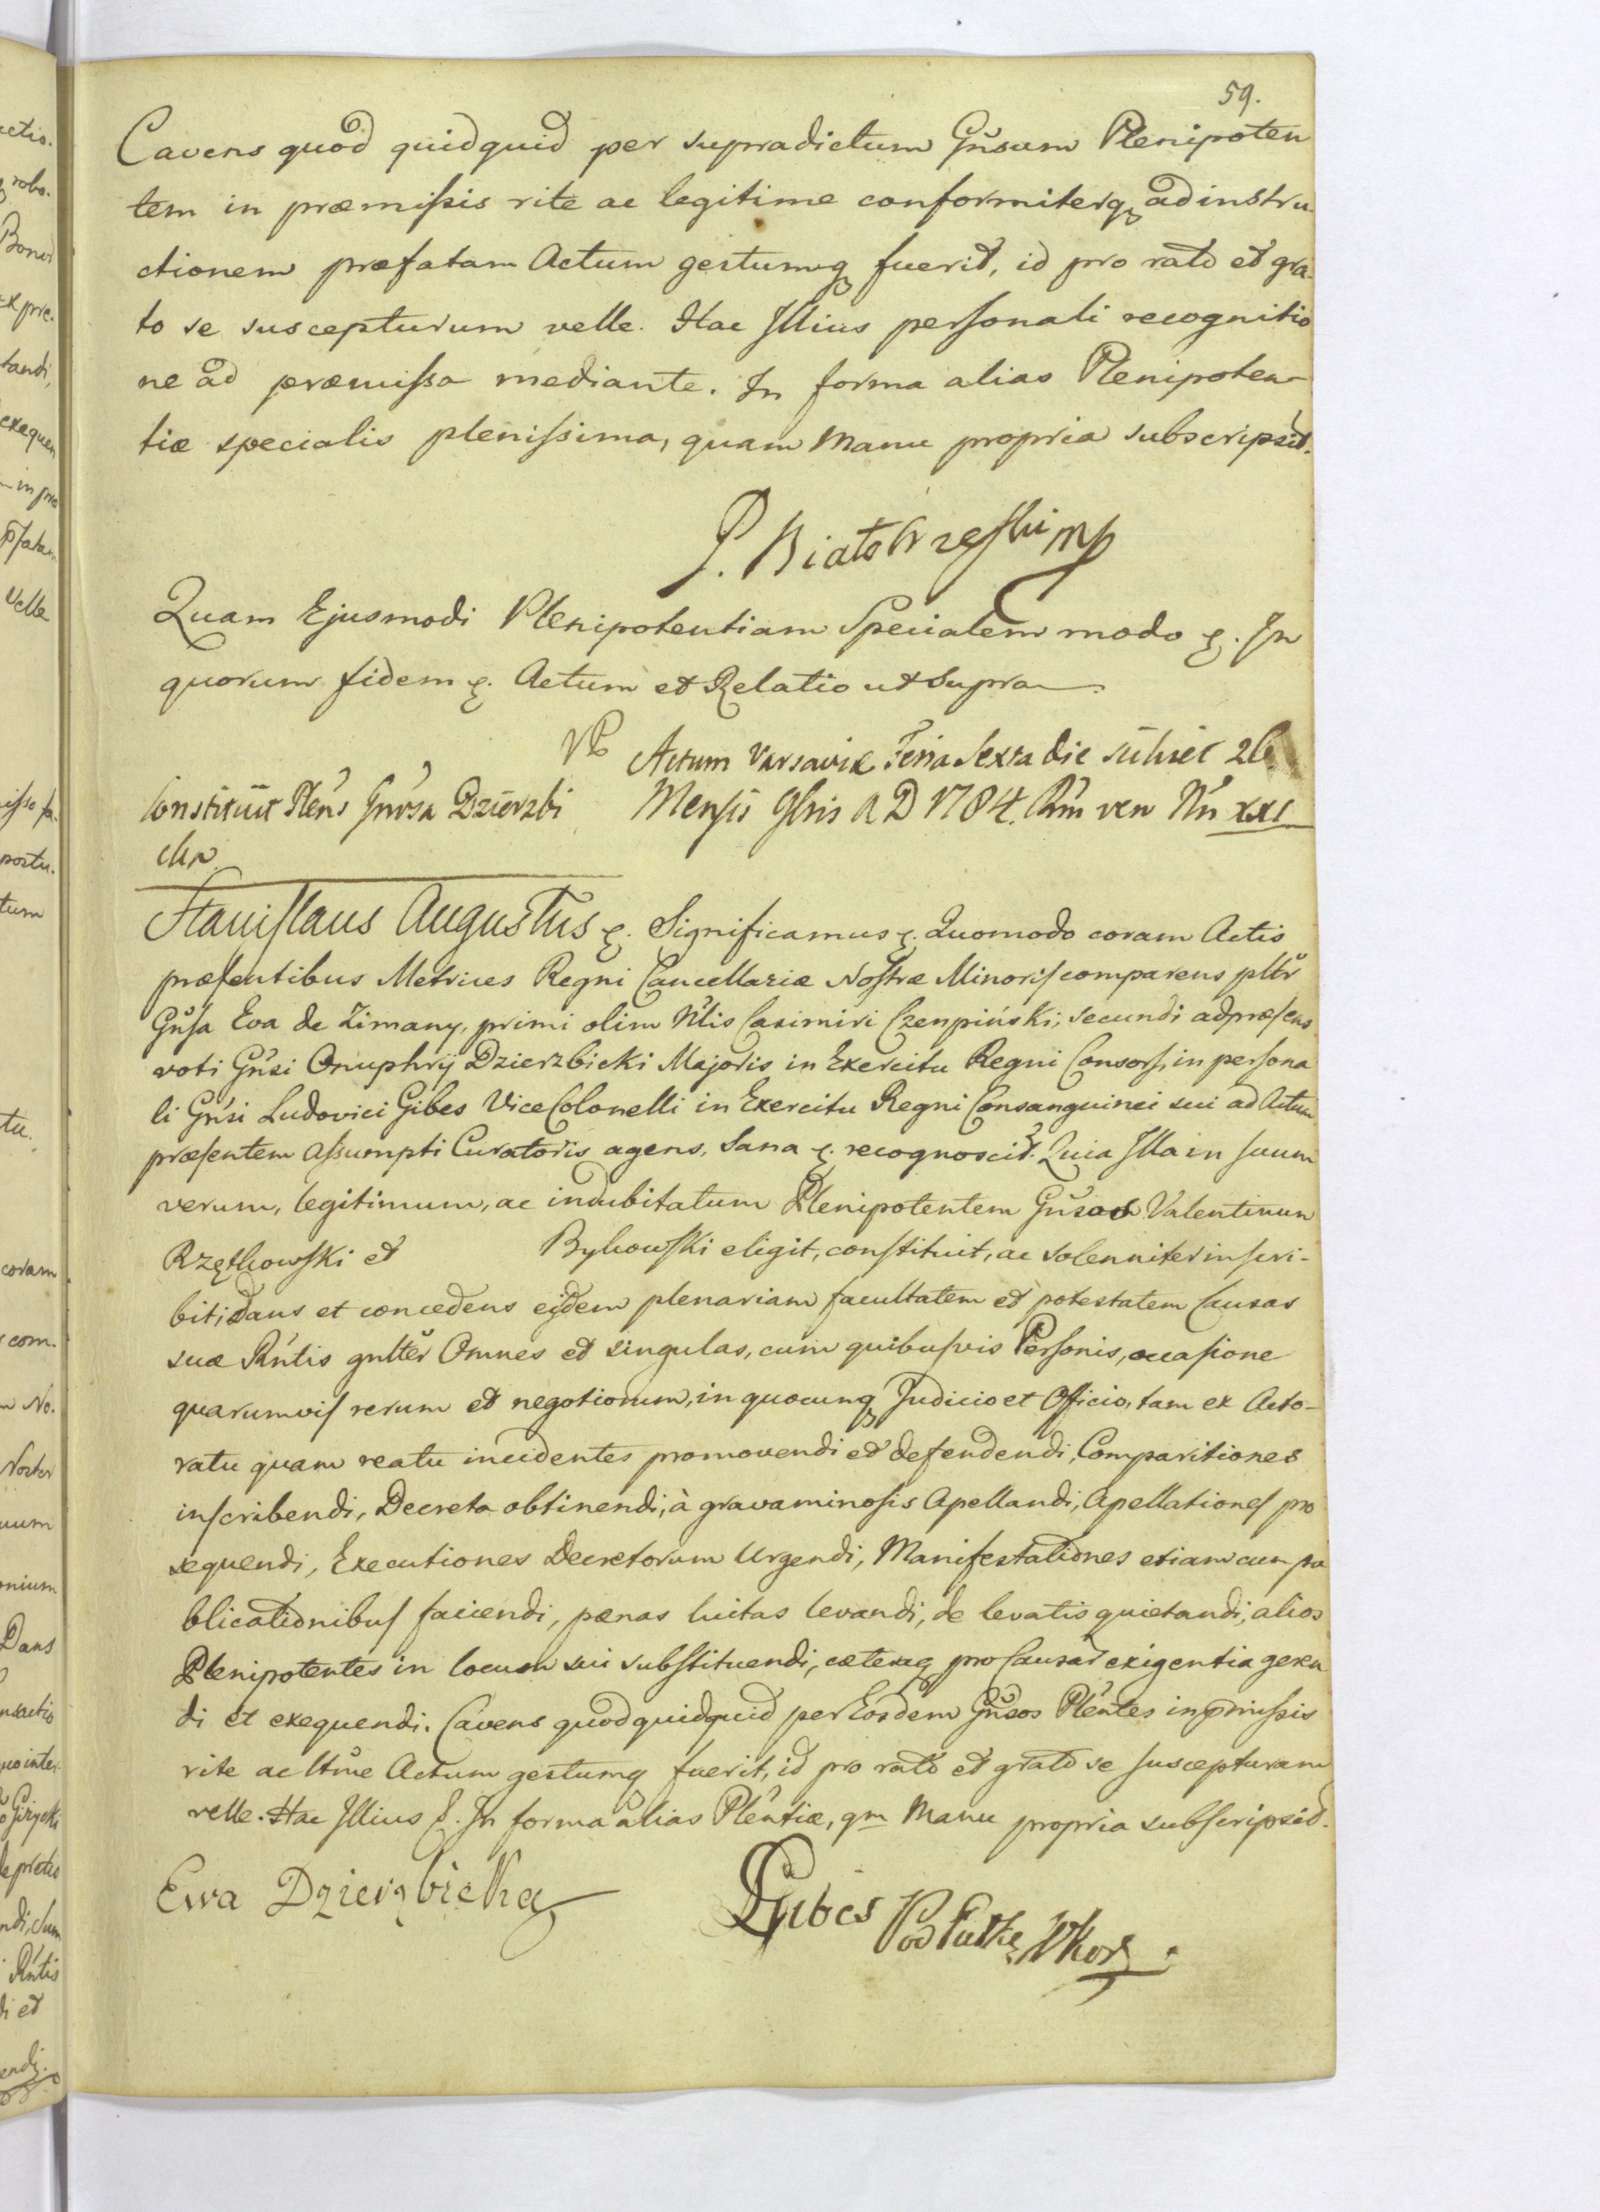 59.
Cavens quod quidquid per supradictum Gnsum Plenipoten
tem in præmissis rite ac legitime conformiterq ad instru
ctionem præfatam Actum gestumq fuerit, id pro rato et gra
to se suscepturum velle. Hac Illius personali recognitio
ne ad præmissa mediante. In forma alias Plenipoten
tiæ specialis plenissima, quam Manu propria subscripsit.
P. Białobrzeski mp
Quam Ejusmodi Plenipotentiam Specialem modo &. In
quorum fidem &. Actum et Relatio ut Supra
Actum Varsaviæ Feria Sexta die scilicet 26
Constituit Plens Gnrsa Dzierzbi
Mensis 9bris A D 1784. Rm ven Nri XXI
cka
Stanislaus Augustus &. Significamus &. Quomodo coram Actis
præsentibus Metrices Regni Cancellariæ Nostræ Minoris comparens pltr
Gnsa Eva de Zimany, primi olim Nlis Casimiri Czenpiński, secundi ad præsens
voti Gnsi Onuphrij Dzierzbicki Majoris in Exercitu Regni Consors, in persona
li Gnsi Ludovici Gibes Vice Colonelli in Exercitu Regni Consanguinei sui ad Actum
præsentem Assumpti Curatoris agens, Sana &. recognoscit. Quia Illa in suum
verum, legitimum, ac indubitatum Plenipotentem Gnsos Valentinum
Rzętkowski et Bykowski eligit, constituit, ac solenniter inscri-
bit, dans et concedens ejsdem plenariam facultatem et potestatem Causas
suæ Rntis gnlter Omnes et singulas, cum quibusvis Personis, occasione
quarumvis rerum et negotiorum, in quocunq Judicio et Officio, tam ex Acto-
ratu quam reatu incidentes promovendi et defendendi, Comparitiones
inscribendi, Decreta obtinendi, à gravaminosis Apellandi, Apellationes pro
sequendi, Executiones Decretorum Urgendi, Manifestationes etiam cum pu
blicationibus faciendi, pænas luitas levandi, de levatis quietandi, alios
Plenipotentes in locum sui substituendi, cæteraq pro Causar exigentia geren
di et exequendi. Cavens quod quidquid per Eosdem Gnsos Plentes in pmissis
rite ac ltme Actum gestumq fuerit, id pro rato et grato se suscepturam
velle. Hac Illius &. In forma alias Plentiæ, qm Manu propria subscripsit.
Ewa Dzierzbicka
LGibes